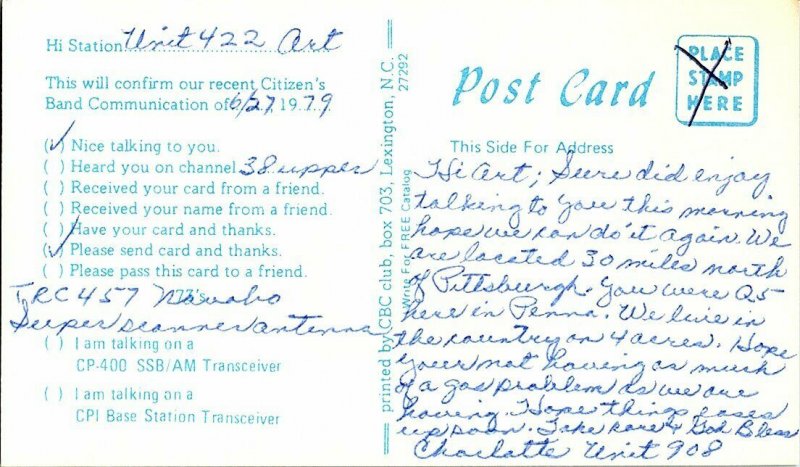 Hi Station Unit 422 Art
This will confirm our recent Citizen's
Band Communication of 6/27 1979
(✓) Nice talking to you.
( ) Heard you on channel 38 upper
( ) Received your card from a friend.
( ) Received your name from a friend.
( ) Have your card and thanks.
(✓) Please send card and thanks.
( ) Please pass this card to a friend.
73's
TRC 457 Navaho
Super scanner antenna
( ) I am talking on a
CP-400 SSB/AM Transceiver
( ) I am talking on a
CPI Base Station Transceiver
printed by CBC club, box 703, Lexington, N.C.
27292
Write For FREE Catalog
Post Card
PLACE
STAMP
HERE
This Side For Address
Hi Art; Sure did enjoy
talking to you this morning
hope we can do it again. We
are located 30 miles north
of Pittsburgh. You were Q5
here in Penna. We live in
the country on 4 acres. Hope
your not having as much
of a gas problem as we are
having. Hope things eases
up soon. Take care & God Bless
Charlotte Unit 908